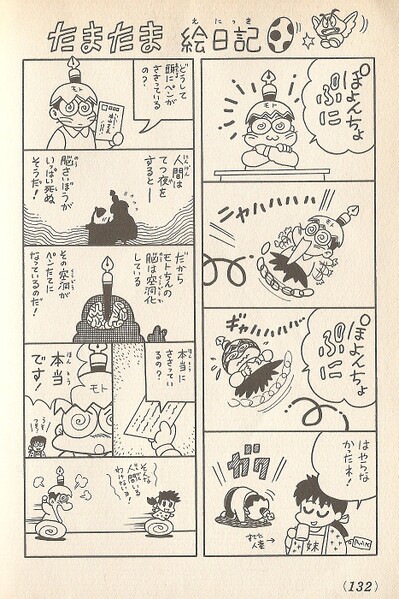 たまたま 絵日記
えにっき
ぽよんちょ
ぷに
モト
シャハハハハ
モト
ぽよんちょ
ぷに
ギャハハハハ
はやらな
かったネ!
ガク
すてた
人妻→
妹
どうして
頭にペンが
ささっている
の?
モト
人間は
てつ夜を
すると―
脳さいぼうが
いっぱい死ぬ
そうだ!
だから
モトちんの
脳は空洞化
している
その空洞が
ペンたてに
なっているのだ!
本当に
ささってい
るの?
本当
です!
モト
そんな
人間いる
わけないよ!
(132)